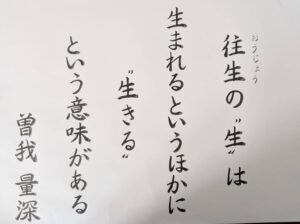 往生の〝生〟は
おうじょう
生まれるというほかに
〝生きる〟
という意味がある
曽我 量深